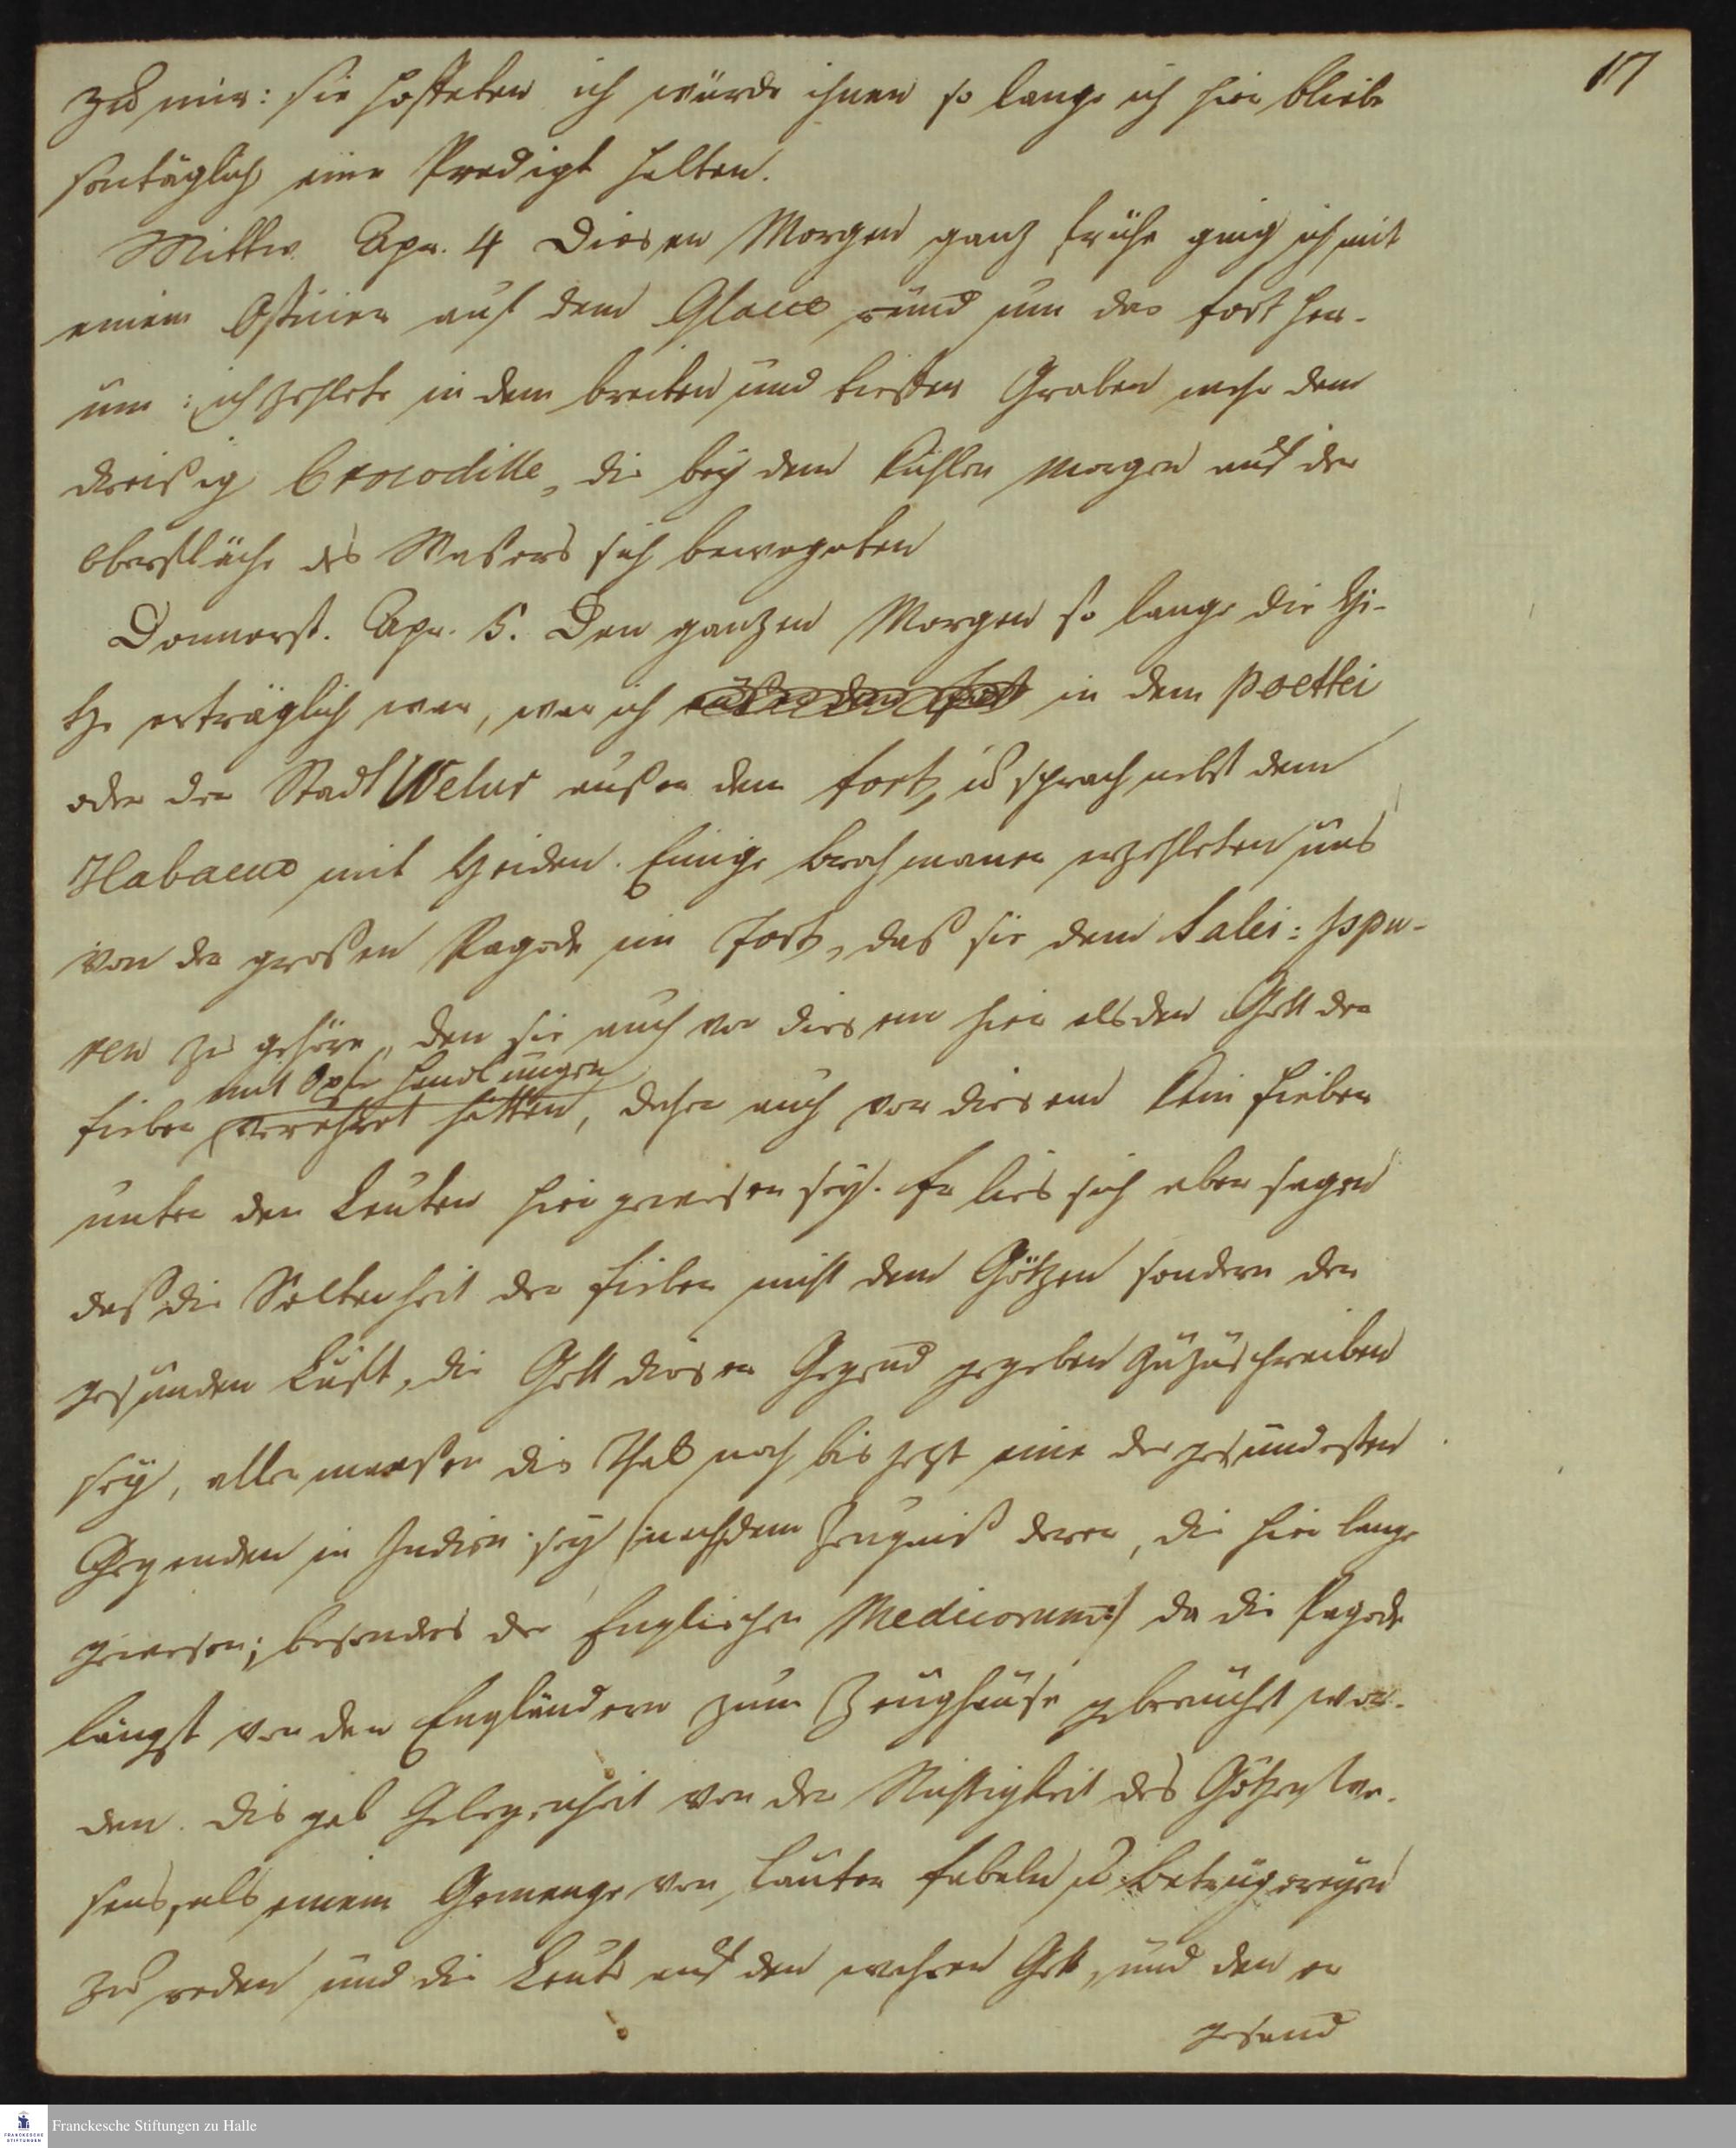 17
zu mir: sie hoffeten ich würde ihnen so lange ich hier bliebe
sontäglich eine Predigt halten.
Mittw. Apr. 4 Diesen Morgen ganz frühe ging ich mit
einem Officier auf dem Glacis rund um das Fort her-
um: ich zehlete in dem breiten und tieffen Graben mehr denn
dreißig Crocodille, die bey dem kühlen Morgen auf der
Oberfläche des Waßers sich bewegeten
Donnerst. Apr. 5. Den ganzen Morgen so lange die Hi-
tze erträglich war, war ich außer dem Fort in dem poettei
oder der Stadt Welur außer dem Fort, u sprach nebst dem
Habacuc mit Heiden. Einige Brachmaner erzehleten uns
von der großen Pagode im Fort, daß sie dem Salei: Jspu-
ren zu gehöre, den sie auch vor diesem hier als den Gott der
mit Opfer Handlungen
Fieber verehret hätten, daher auch vor diesem kein Fieber
unter den Leuten hier gewesen sey. Er lies sich aber sagen
daß die Seltenheit der Fieber nicht dem Götzen sondern der
gesunden Luft, die Gott dieser Gegend gegeben zuzuschreiben
sey, aller maaßen dis Thal noch bis jezt eine der gesundesten
Gegenden in Indien sey (nach dem Zeugniß derer, die hier lange
gewesen; besonders der Englischen Medicorum:) da die Pagode
längst von den Engländern zum Zeughause gebraucht wor-
den. Dis gab Gelegenheit von der Nichtigkeit des Götzenwe-
sens, als einem Gemenge von lauter Fabeln u. Betrügereyen
zu reden und die Leute auf den wahren Gott, und den er
gesand
Franckesche Stiftungen zu Halle
FRANCKESCHE
STIFTUNGEN